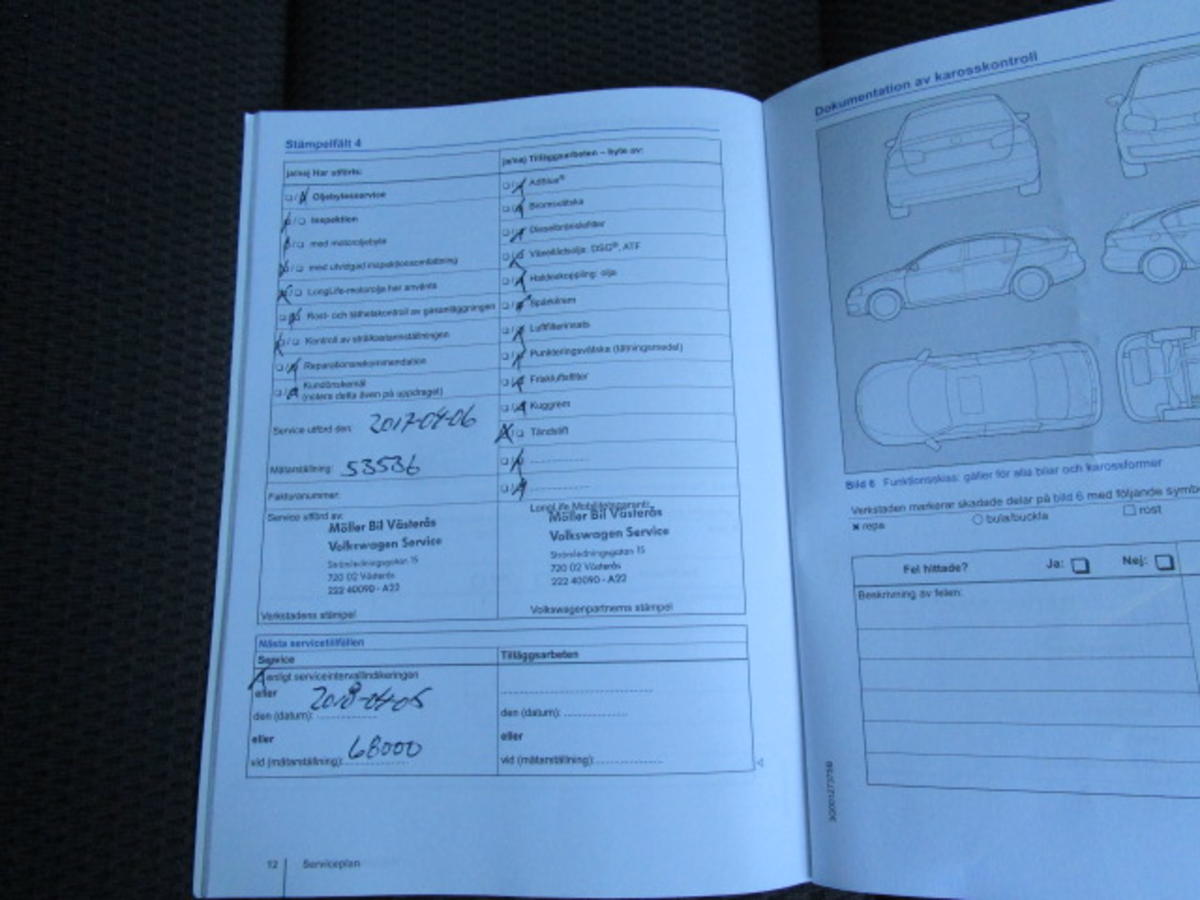 Stämpelfält 4
ja/nej Har utförts:
Oljebytesservice
Inspektion
med motoroljebyte
med utvidgad inspektionsomfattning
LongLife-motorolja har använts
Rost- och täthetskontroll av gasanläggningen
Kontroll av strålkastarinställningen
Reparationsrekommendation
Kundönskemål
(notera detta även på uppdraget)
Service utförd den: 2017-04-06
Mätarställning: 53536
Fakturanummer:
Service utförd av:
Möller Bil Västerås
Volkswagen Service
Strömledningsgatan 15
720 02 Västerås
222 40090 - A22
Verkstadens stämpel
ja/nej Tilläggsarbeten – byte av:
AdBlue®
Bromsvätska
Dieselbränslefilter
Växellådsolja: DSG®, ATF
Haldexkoppling: olja
Spårkilrem
Luftfilterinsats
Punkteringsvätska (tätningsmedel)
Friskluftsfilter
Kuggrem
Tändstift
LongLife Mobilitetsgaranti:
Möller Bil Västerås
Volkswagen Service
Strömledningsgatan 15
720 02 Västerås
222 40090 - A22
Volkswagenpartnerns stämpel
Nästa servicetillfällen
Service
enligt serviceintervallindikeringen
eller
den (datum): 2018-04-05
eller
vid (mätarställning): 68000
Tilläggsarbeten
den (datum):
eller
vid (mätarställning):
12 Serviceplan
Dokumentation av karosskontroll
Bild 6 Funktionsskiss: gäller för alla bilar och karossformer
Verkstaden markerar skadade delar på bild 6 med följande
repa bula/buckla rost
Fel hittade? Ja: Nej:
Beskrivning av felen: